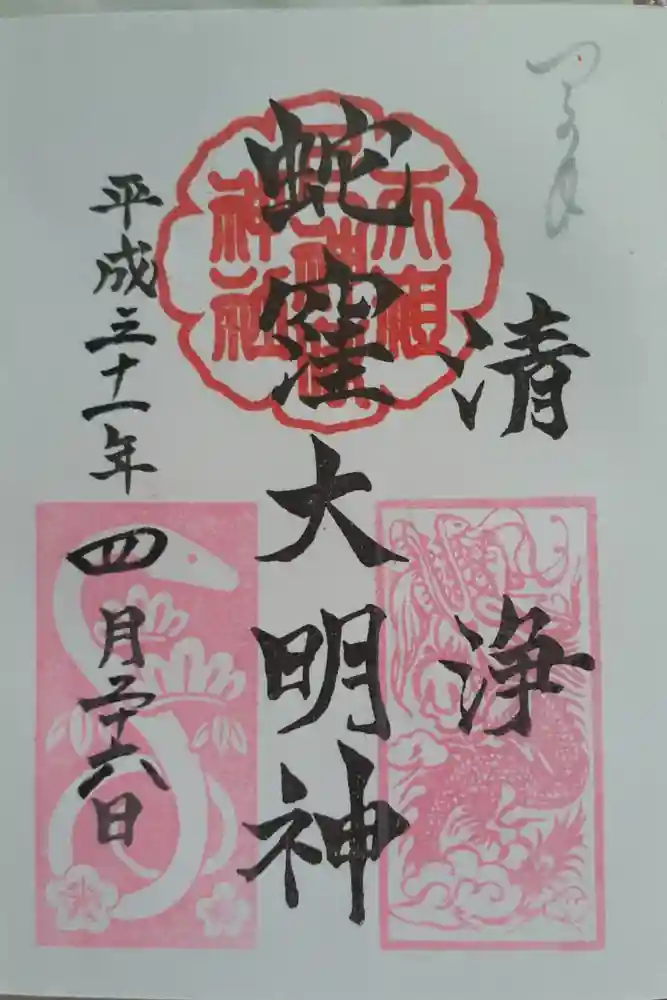 清浄
蛇窪大明神
平成三十一年四月二十六日